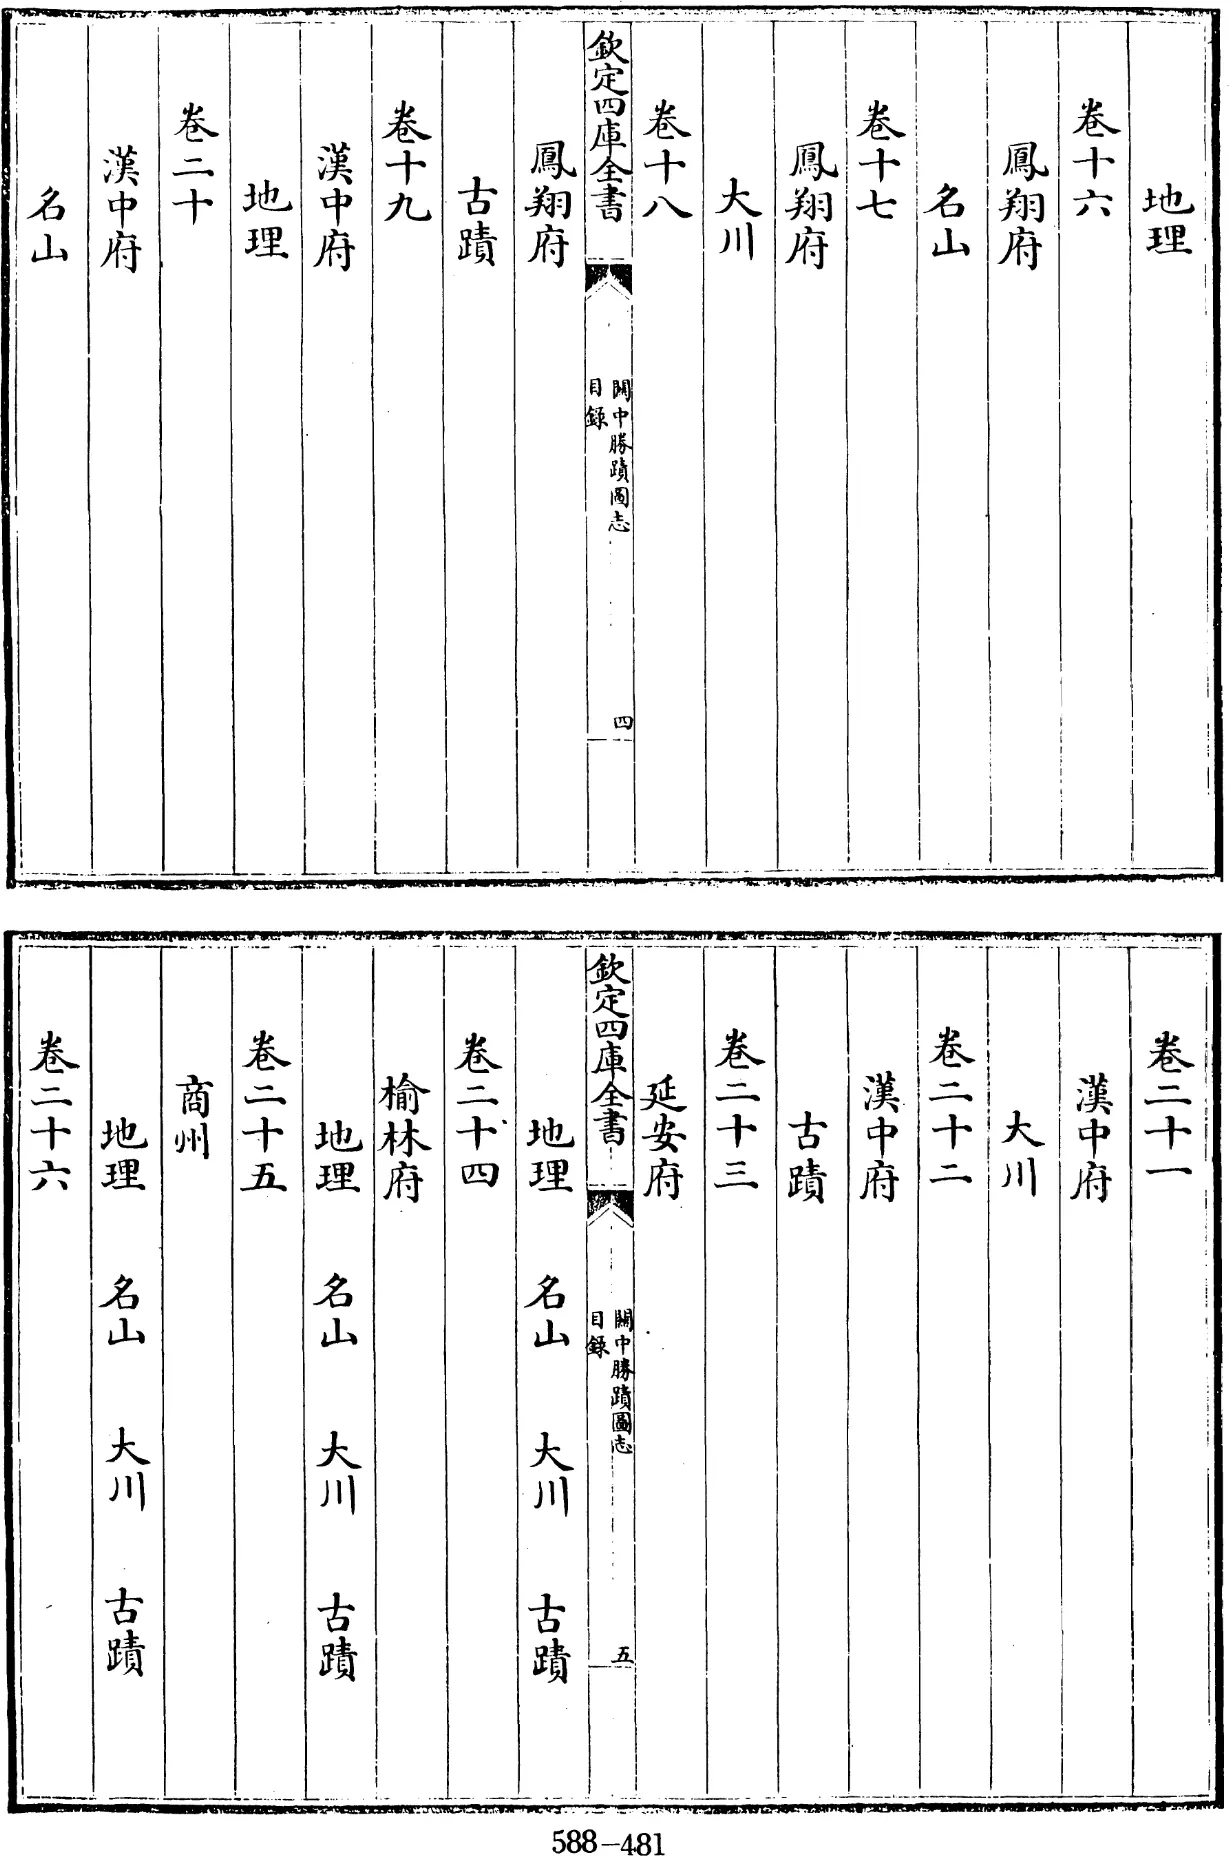 地理
卷十六
鳳翔府
名山
卷十七
鳳翔府
大川
卷十八
欽定四庫全書
關中勝蹟圖志
目錄
四
鳳翔府
古蹟
卷十九
漢中府
地理
卷二十
漢中府
名山
卷二十一
漢中府
大川
卷二十二
漢中府
古蹟
卷二十三
延安府
欽定四庫全書
關中勝蹟圖志
目錄
五
地理 名山 大川 古蹟
卷二十四
榆林府
地理 名山 大川 古蹟
卷二十五
商州
地理 名山 大川 古蹟
卷二十六
588-481